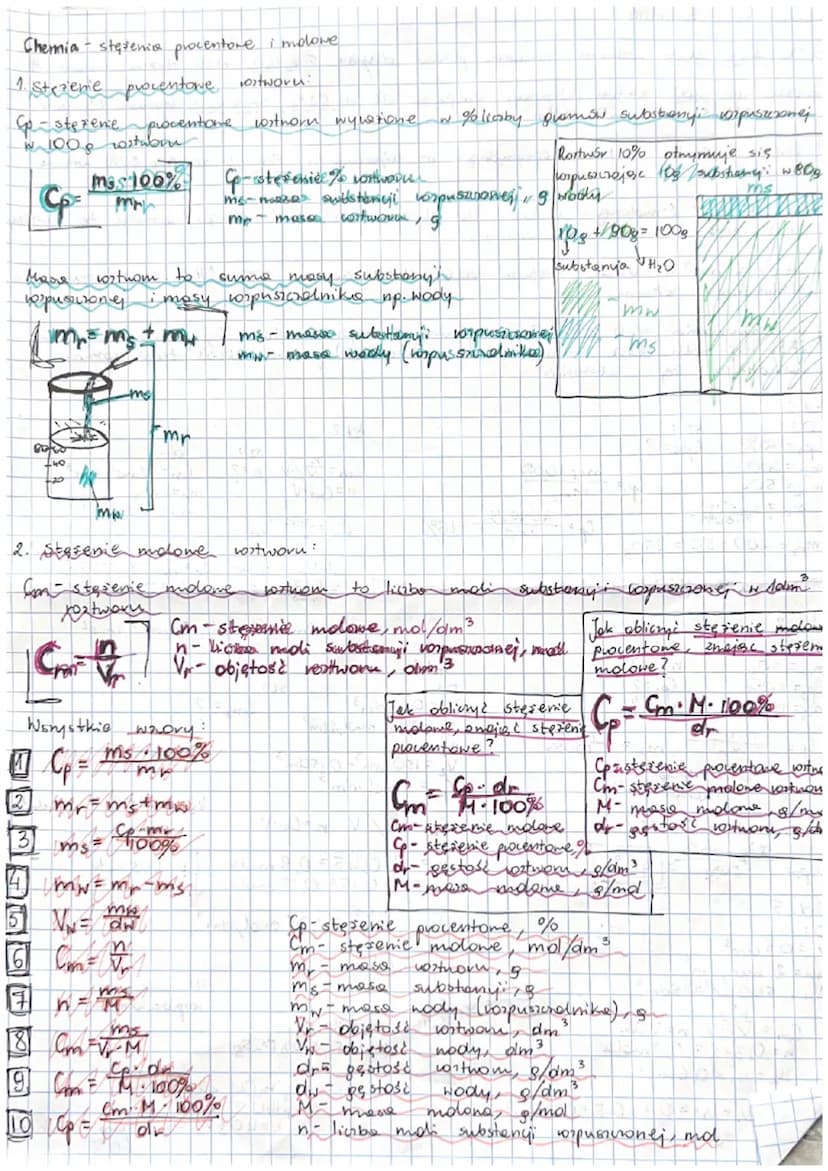 Chemia - stężenia procentowe i molowe
1. Stężenie procentowe roztworu:
Cp - stężenie procentowe roztworu wyrażone w % liczby gramów substancji rozpuszczonej
w 100g roztworu
Cp = ms · 100% / mr
Cp - stężenie % roztworu
ms - masa substancji rozpuszczonej, g
mr - masa roztworu, g
Roztwór 10% otrzymuje się
rozpuszczając 10g substancji w 80g
wody
ms
10g + 90g = 100g
substancja H₂O
- mw
- ms
mw
Masa roztworu to suma masy substancji
rozpuszczonej i masy rozpuszczalnika np. wody
mr = ms + mw
ms - masa substancji rozpuszczonej
mw - masa wody (rozpuszczalnika)
ms
mr
40
20
mw
2. Stężenie molowe roztworu:
Cm - stężenie molowe roztworu to liczba moli substancji rozpuszczonej w 1dm³
roztworu
Cm = n / Vr
Cm - stężenie molowe, mol/dm³
n - liczba moli substancji rozpuszczonej, mol
Vr - objętość roztworu, dm³
Jak obliczyć stężenie
procentowe, znając
molowe?
Cp = Cm · M · 100% / dr
Cp - stężenie procentowe
Cm - stężenie molowe
M - masa molowa,
dr - gęstość roztworu,
Jak obliczyć stężenie
molowe, znając stężenie
procentowe?
Cm = Cp · dr / M · 100%
Cm - stężenie molowe
Cp - stężenie procentowe, %
dr - gęstość roztworu, g/dm³
M - masa molowa, g/mol
Wszystkie wzory:
1 Cp = ms · 100% / mr
2 mr = ms + mw
3 ms = Cp · mr / 100%
4 mw = mr - ms
5 Vw = mw / dw
6 Cm = n / Vr
7 n = ms / M
8 Cm = ms / Vr · M
9 Cm = Cp · dr / M · 100%
10 Cp = Cm · M · 100% / dr
Cp - stężenie procentowe, %
Cm - stężenie molowe, mol/dm³
mr - masa roztworu, g
ms - masa substancji, g
mw - masa wody (rozpuszczalnika), g
Vr - objętość roztworu, dm³
Vw - objętość wody, dm³
dr = gęstość roztworu, g/dm³
dw - gęstość wody, g/dm³
M - masa molowa, g/mol
n - liczba moli substancji rozpuszczonej, mol